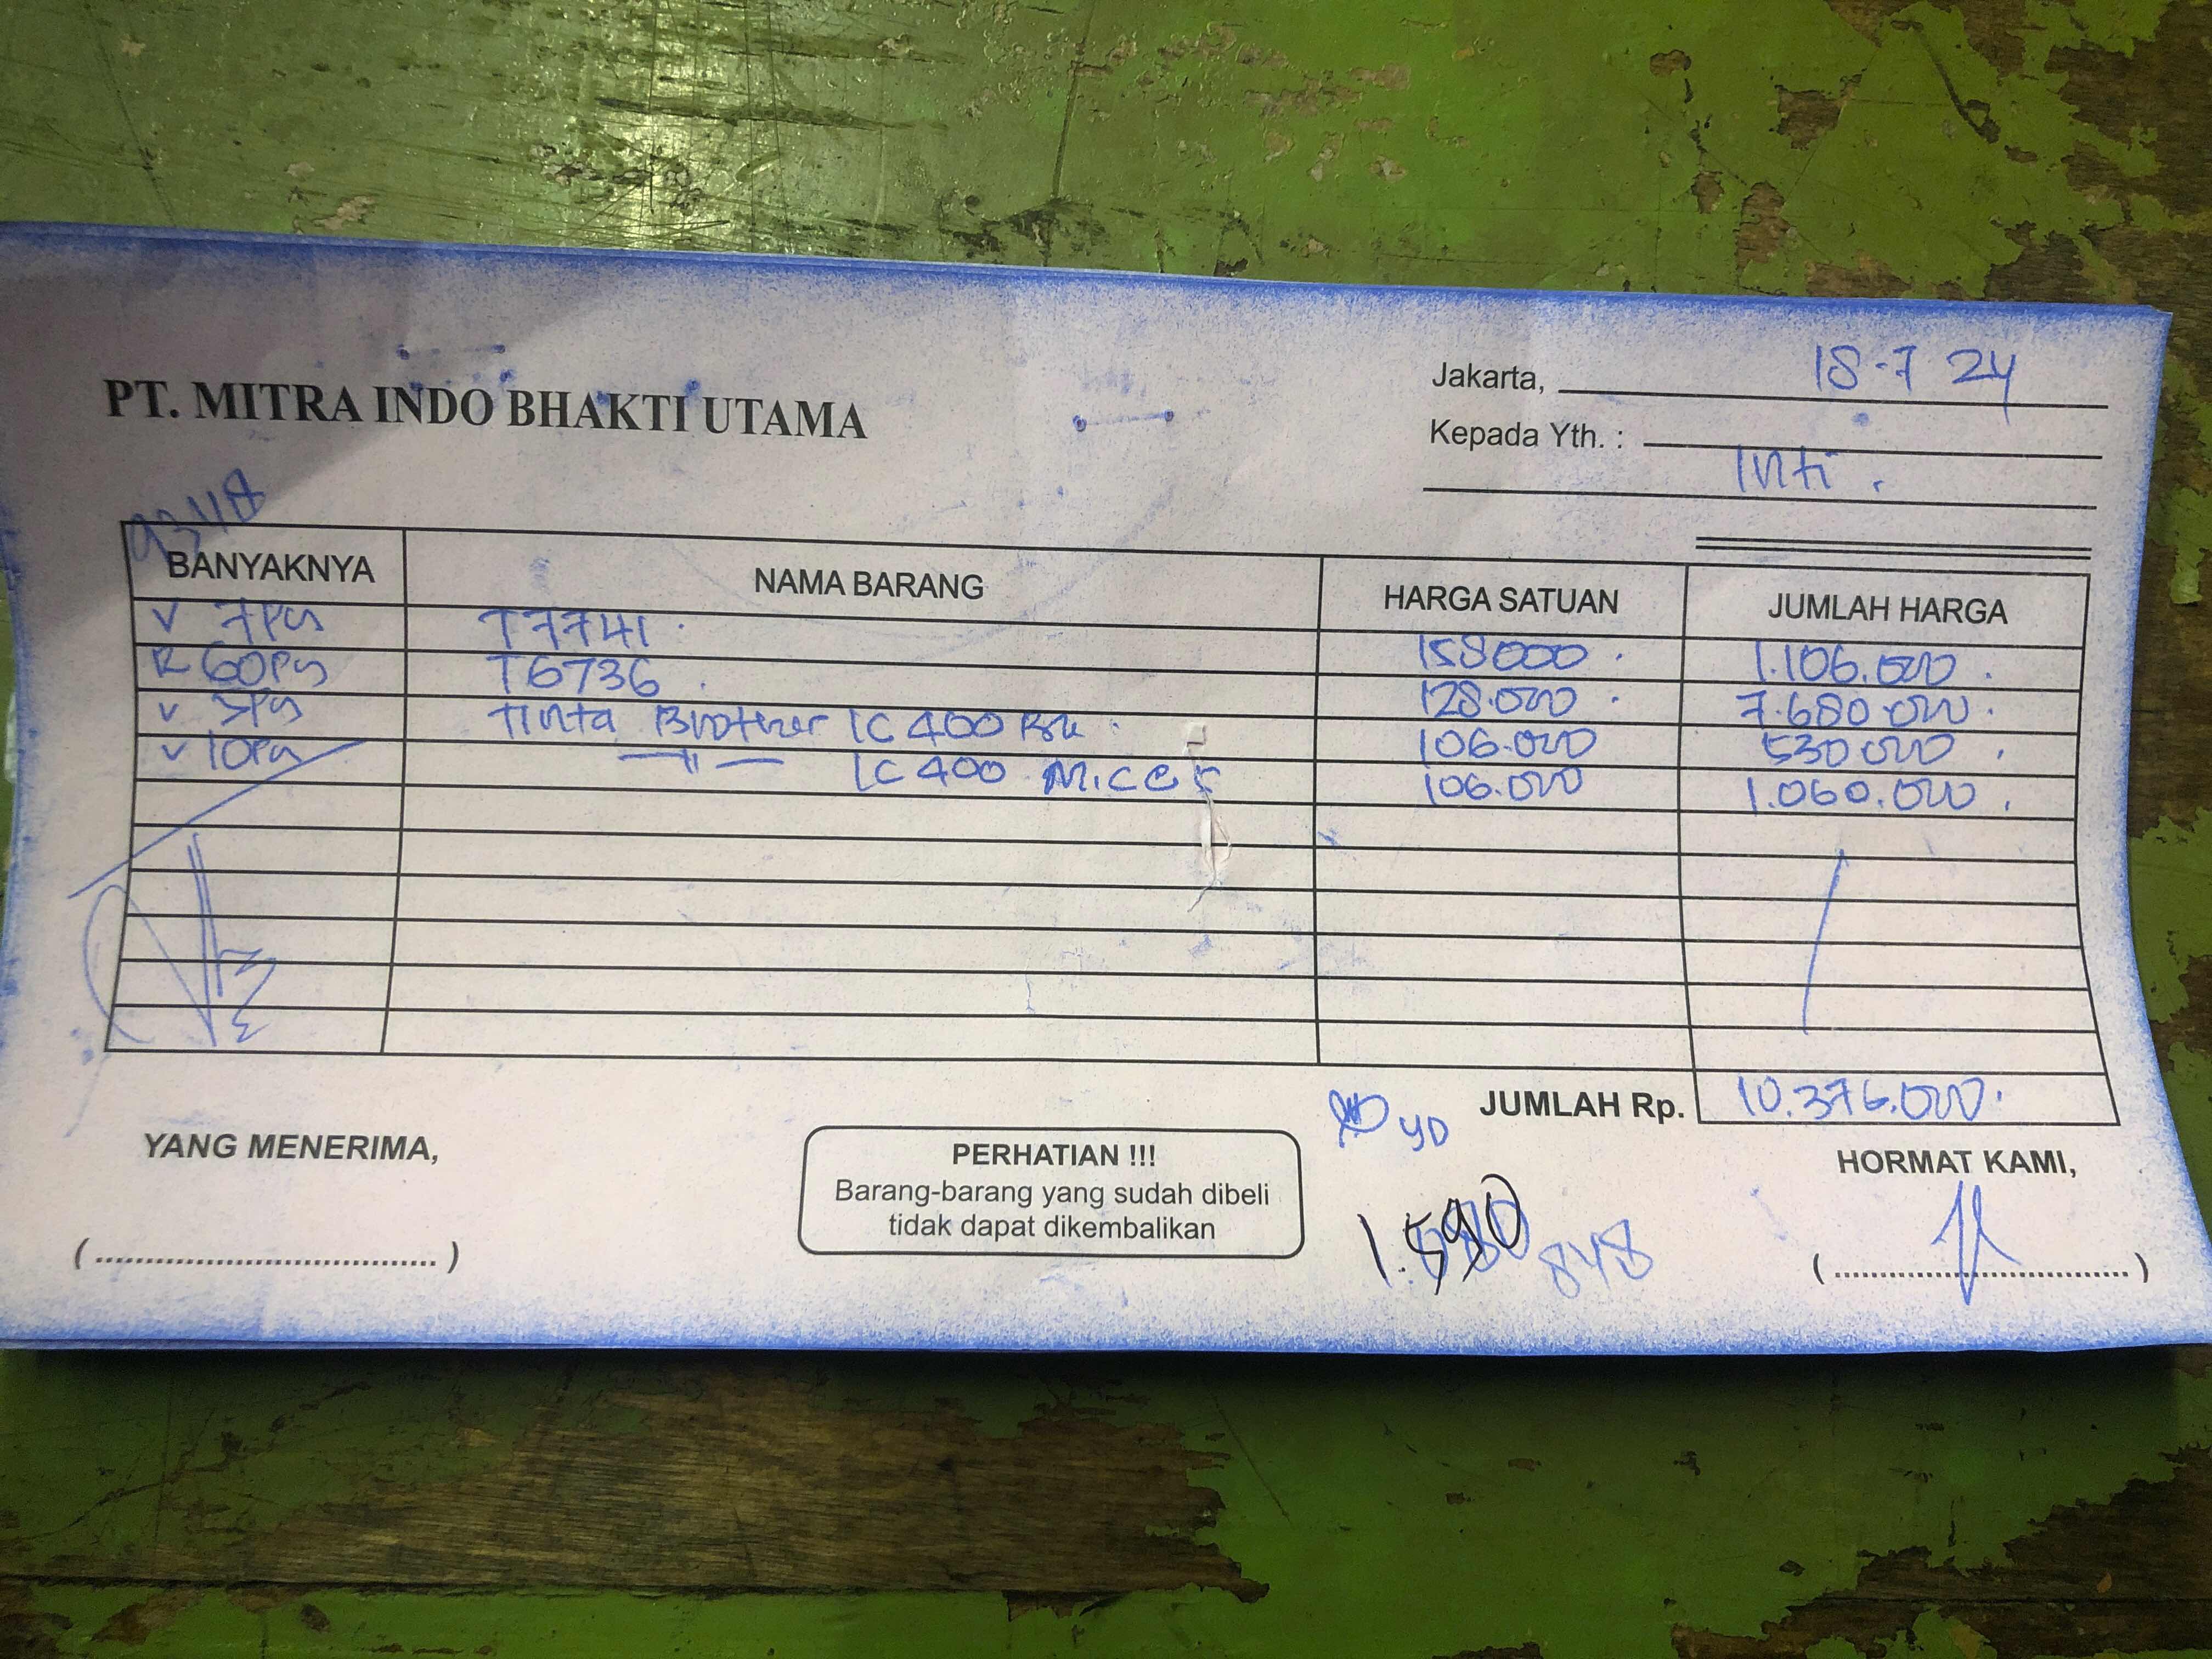 PT. MITRA INDO BHAKTI UTAMA
Jakarta, 18-7 24
Kepada Yth. : Inti.
BANYAKNYA NAMA BARANG HARGA SATUAN JUMLAH HARGA
V 7 Pcs T7741. 158000. 1.106.000.
R 60 Pcs T6736. 128.000. 7.680.000.
V 5 Pcs Tinta Brother LC 400 BK. 106.000 530.000.
V 10 Pcs —〃— LC 400 M.C 106.000 1.060.000.
JUMLAH Rp. 10.376.000.
YANG MENERIMA,
PERHATIAN !!!
Barang-barang yang sudah dibeli
tidak dapat dikembalikan
HORMAT KAMI,
1.590 848
(....................................)
(....................................)